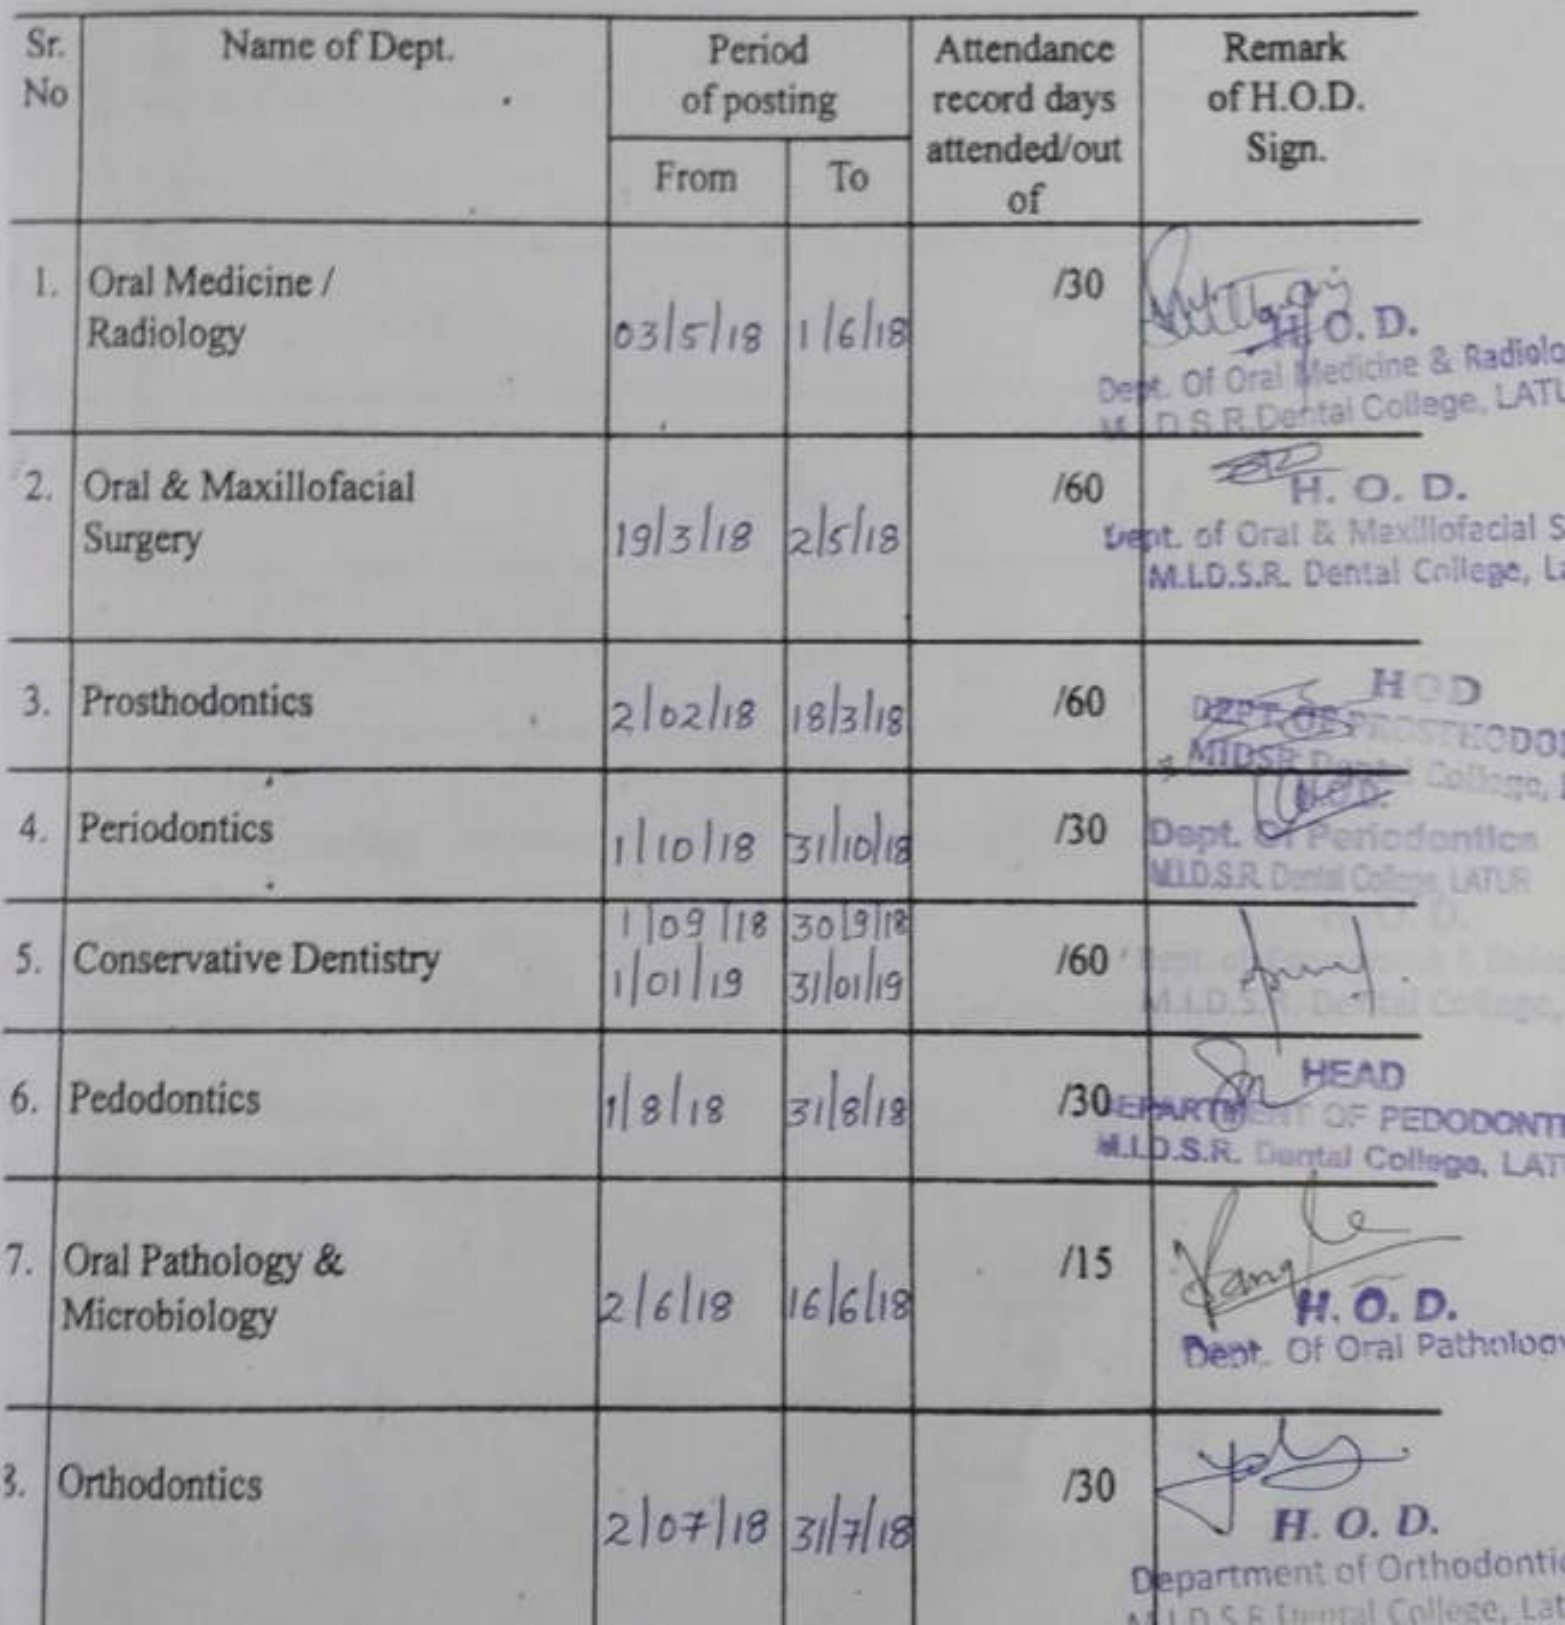 Sr. No Name of Dept. Period of posting Attendance record days attended/out of Remark of H.O.D. Sign.
From To
1. Oral Medicine / Radiology 03/5/18 1/6/18 /30
H.O.D.
Dept. Of Oral Medicine & Radiolo
M.I.D.S.R. Dental College, LATU
2. Oral & Maxillofacial Surgery 19/3/18 2/5/18 /60
H. O. D.
Dept. of Oral & Maxillofacial S
M.I.D.S.R. Dental College, La
3. Prosthodontics 2/02/18 18/3/18 /60
HOD
DEPT. OF PROSTHODON
MIDSR Dental College,
4. Periodontics 1/10/18 31/10/18 /30
H.O.D.
Dept. Of Periodontics
M.I.D.S.R. Dental College, LATUR
5. Conservative Dentistry 1/09/18 30/9/18 /60
1/01/19 31/01/19
H.O.D.
M.I.D.S.R. Dental College,
6. Pedodontics 1/8/18 31/8/18 /30
HEAD
DEPARTMENT OF PEDODONTI
M.I.D.S.R. Dental College, LAT
7. Oral Pathology & Microbiology 2/6/18 16/6/18 /15
H. O. D.
Dept. Of Oral Pathology
8. Orthodontics 2/07/18 31/7/18 /30
H. O. D.
Department of Orthodontic
M.I.D.S.R Dental College, Lat